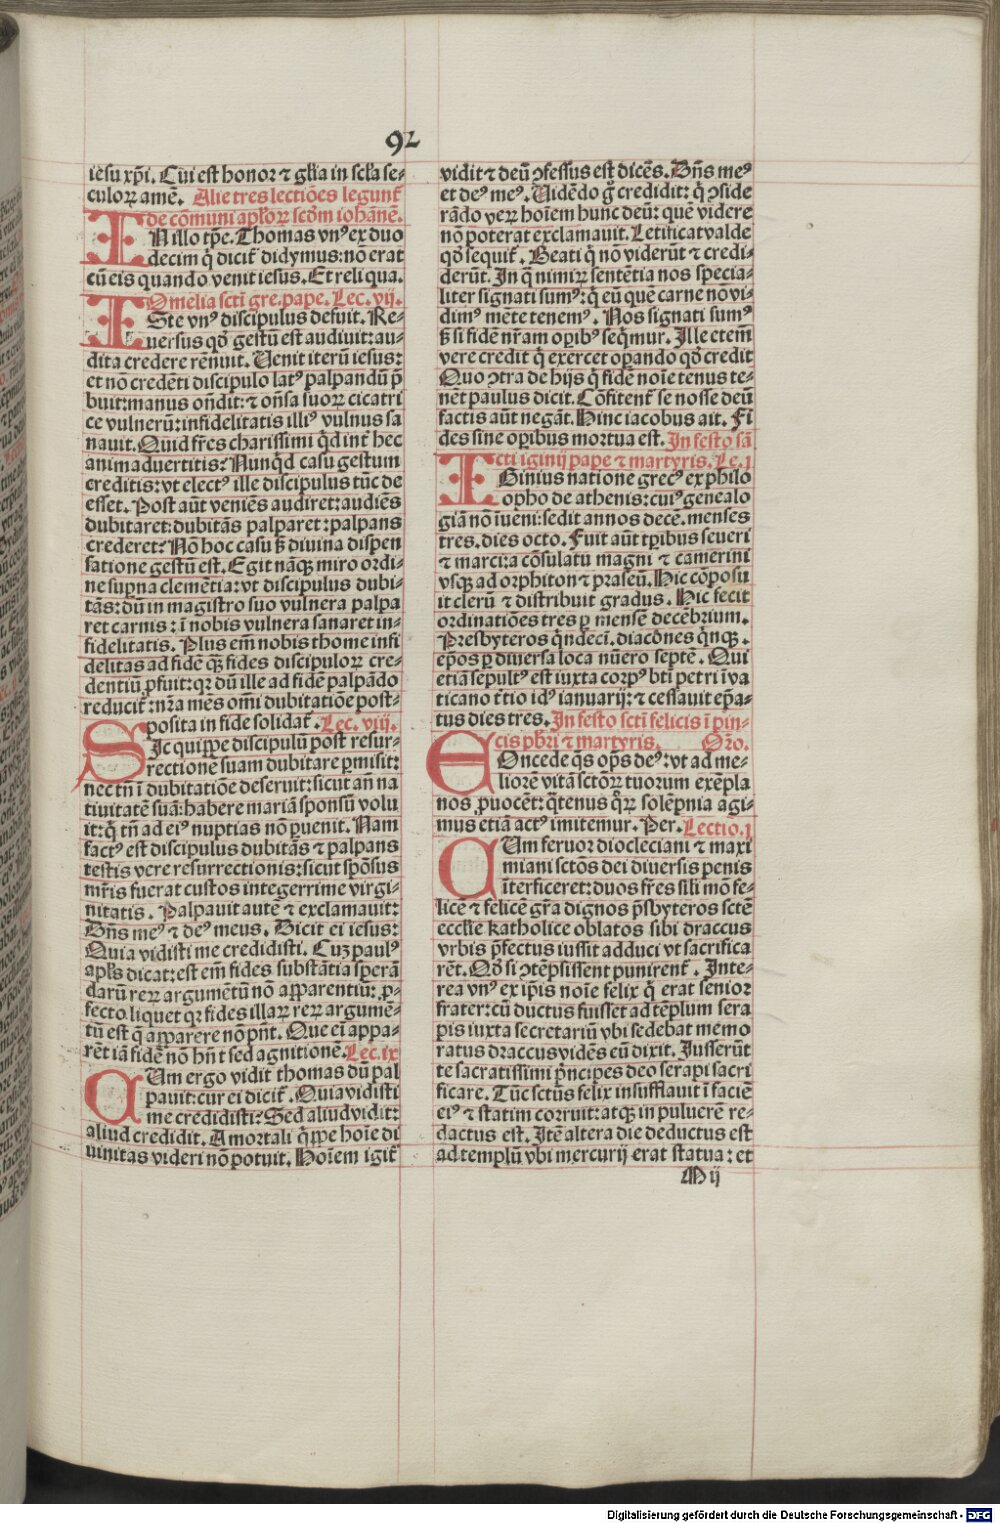 92
iesu xp̄i. Cui est honor ⁊ gl̄ia in scl̄a se-
culoꝝ amē. Alie tres lectiōes legunt᷑
de cōmuni apl̓oꝝ scd̓m iohānē.
IN illo tp̄e. Thomas vnꝰ ex duo
decim q̄ dicit᷑ didymus: nō erat
cū eis quando venit iesus. Et reliqua.
Omelia scti gre. pape. Lec. vij.
ISte vnꝰ discipulus defuit. Re-
uersus qd̓ gestū est audiuit: au-
dita credere rēnuit. Uenit iterū iesus:
et nō credēti discipulo latꝰ palpandū p̄
buit: manus on̄dit: ⁊ on̄sa suoꝝ cicatri
ce vulnerū: infidelitatis illiꝰ vulnus sa
nauit. Quid fr̄es charissimi q̄d int̓ hec
animaduertitis? Nunq̄d casu gestum
creditis: vt electꝰ ille discipulus tūc de
esset. Post aūt veniēs audiret: audiēs
dubitaret: dubitās palparet: palpans
crederet? Nō hoc casu ꝫ diuina dispen
satione gestū est. Egit nāqꝫ miro ordi-
ne sup̄na clemētia: vt discipulus dubi-
tās: dū in magistro suo vulnera palpa
ret carnis: ī nobis vulnera sanaret in-
fidelitatis. Plus em̄ nobis thome infi
delitas ad fidē qꝫ fides discipuloꝝ cre-
dentiū ꝓfuit: qꝛ dū ille ad fidē palpādo
reducit᷑: nr̄a mēs om̄i dubitatiōe post-
posita in fide solidat᷑. Lec. viij.
SIc quippe discipulū post resur-
rectione suam dubitare ꝑmisit:
nec tn̄ ī dubitatiōe deseruit: sicut an̄ na
tiuitatē suā: habere mariā sponsū volu
it: q̄ tn̄ ad eiꝰ nuptias nō ꝑuenit. Nam
factꝰ est discipulus dubitās ⁊ palpans
testis vere resurrectionis: sicut spōsus
mr̄is fuerat custos integerrime virgi-
nitatis. Palpauit autē ⁊ exclamauit:
Dn̄s meꝰ ⁊ deꝰ meus. Dicit ei iesus:
Quia vidisti me credidisti. Cuz paulꝰ
apl̓s dicat: est em̄ fides substātia sperā
darū reꝝ argumētū nō apparentiū: ꝓ-
fecto liquet qꝛ fides illaꝝ reꝝ argumē-
tū est q̄ apparere nō pn̄t. Que ei̅ appa-
rēt iā fidē nō hn̄t sed agnitione. Lec. ix
CUm ergo vidit thomas dū pal
pauit: cur ei dicit᷑. Quia vidisti
me credidisti? Sed aliud vidit:
aliud credidit. A mortali q̄ppe hoīe di
uinitas videri nō potuit. Hoīem igit᷑
vidit ⁊ deū ꝯfessus est dicēs. Dn̄s meꝰ
et deꝰ meꝰ. Uidēdo g̊ credidit: q̄ ꝯside
rādo veꝝ hoīem hunc deū: quē videre
nō poterat exclamauit. Letificat valde
qd̓ sequit᷑. Beati q̄ nō viderūt ⁊ credi-
derūt. In q̄ nimirꝝ sentētia nos specia-
liter signati sumꝰ: q̄ eū quē carne nō vi-
dimꝰ mēte tenemꝰ. Nos signati sumꝰ
ꝫ si fidē nr̄am oꝑibꝰ seq̄mur. Ille etem̄
vere credit q̄ exercet oꝑando qd̓ credit
Quo ꝯtra de hijs q̄ fidē noīe tenus te-
nēt paulus dicit. Cōfitent᷑ se nosse deū
factis aūt negāt. Hinc iacobus ait. Fi
des sine oꝑibus mortua est. In festo sā
cti iginij pape ⁊ martyris. Le. j
IGinius natione grecꝰ ex philo
opho de athenis: cuiꝰ genealo
giā nō īueni: sedit annos decē. menses
tres. dies octo. Fuit aūt tꝑibus seueri
⁊ marci: a cōsulatu magni ⁊ camerini
vsqꝫ ad orphiton ⁊ prascū. Hic cōposu
it clerū ⁊ distribuit gradus. Hic fecit
ordinatiōes tres ꝑ mensē decēbrium.
Presbyteros q̄ndecī. diacōnes q̄nqꝫ.
ep̄os ꝑ diuersa loca nūero septē. Qui
etiā sepultꝰ est iuxta corpꝰ bt̄i petri ī va
ticano t̓tio idꝰ ianuarij: ⁊ cessauit ep̄a-
tus dies tres. In festo scti felicis ī pin-
cis pb̄ri ⁊ martyris. Or̄o.
COncede qs̄ op̄s deꝰ: vt ad me-
liorē vitā sctōꝝ tuorum exēpla
nos ꝓuocēt: q̄tenus q̄ꝝ solēpnia agi-
mus etiā actꝰ imitemur. Per. Lectio. j
CUm feruor diocleciani ⁊ maxi
miani sctōs dei diuersis penis
īterficeret: duos fr̄es sili mō fe-
licē ⁊ felicē gr̄a dignos p̄sbyteros sctē
eccl̄ie katholice oblatos sibi draccus
vrbis p̄fectus iussit adduci vt sacrifica
rēt. Qd̓ si ꝯtēpsissent punirent᷑. Inte-
rea vnꝰ ex ip̄is noīe felix q̄ erat senior
frater: cū ductus fuisset ad tēplum sera
pis iuxta secretariū vbi sedebat memo
ratus draccus vidēs eū dixit. Iusserūt
te sacratissimi p̄ncipes deo serapi sacri
ficare. Tūc sctūs felix insufflauit ī faciē
eiꝰ ⁊ statim corruit: atqꝫ in puluerē re-
dactus est. Itē altera die deductus est
ad templū vbi mercurij erat statua: et
M ij
Digitalisierung gefördert durch die Deutsche Forschungsgemeinschaft - DFG